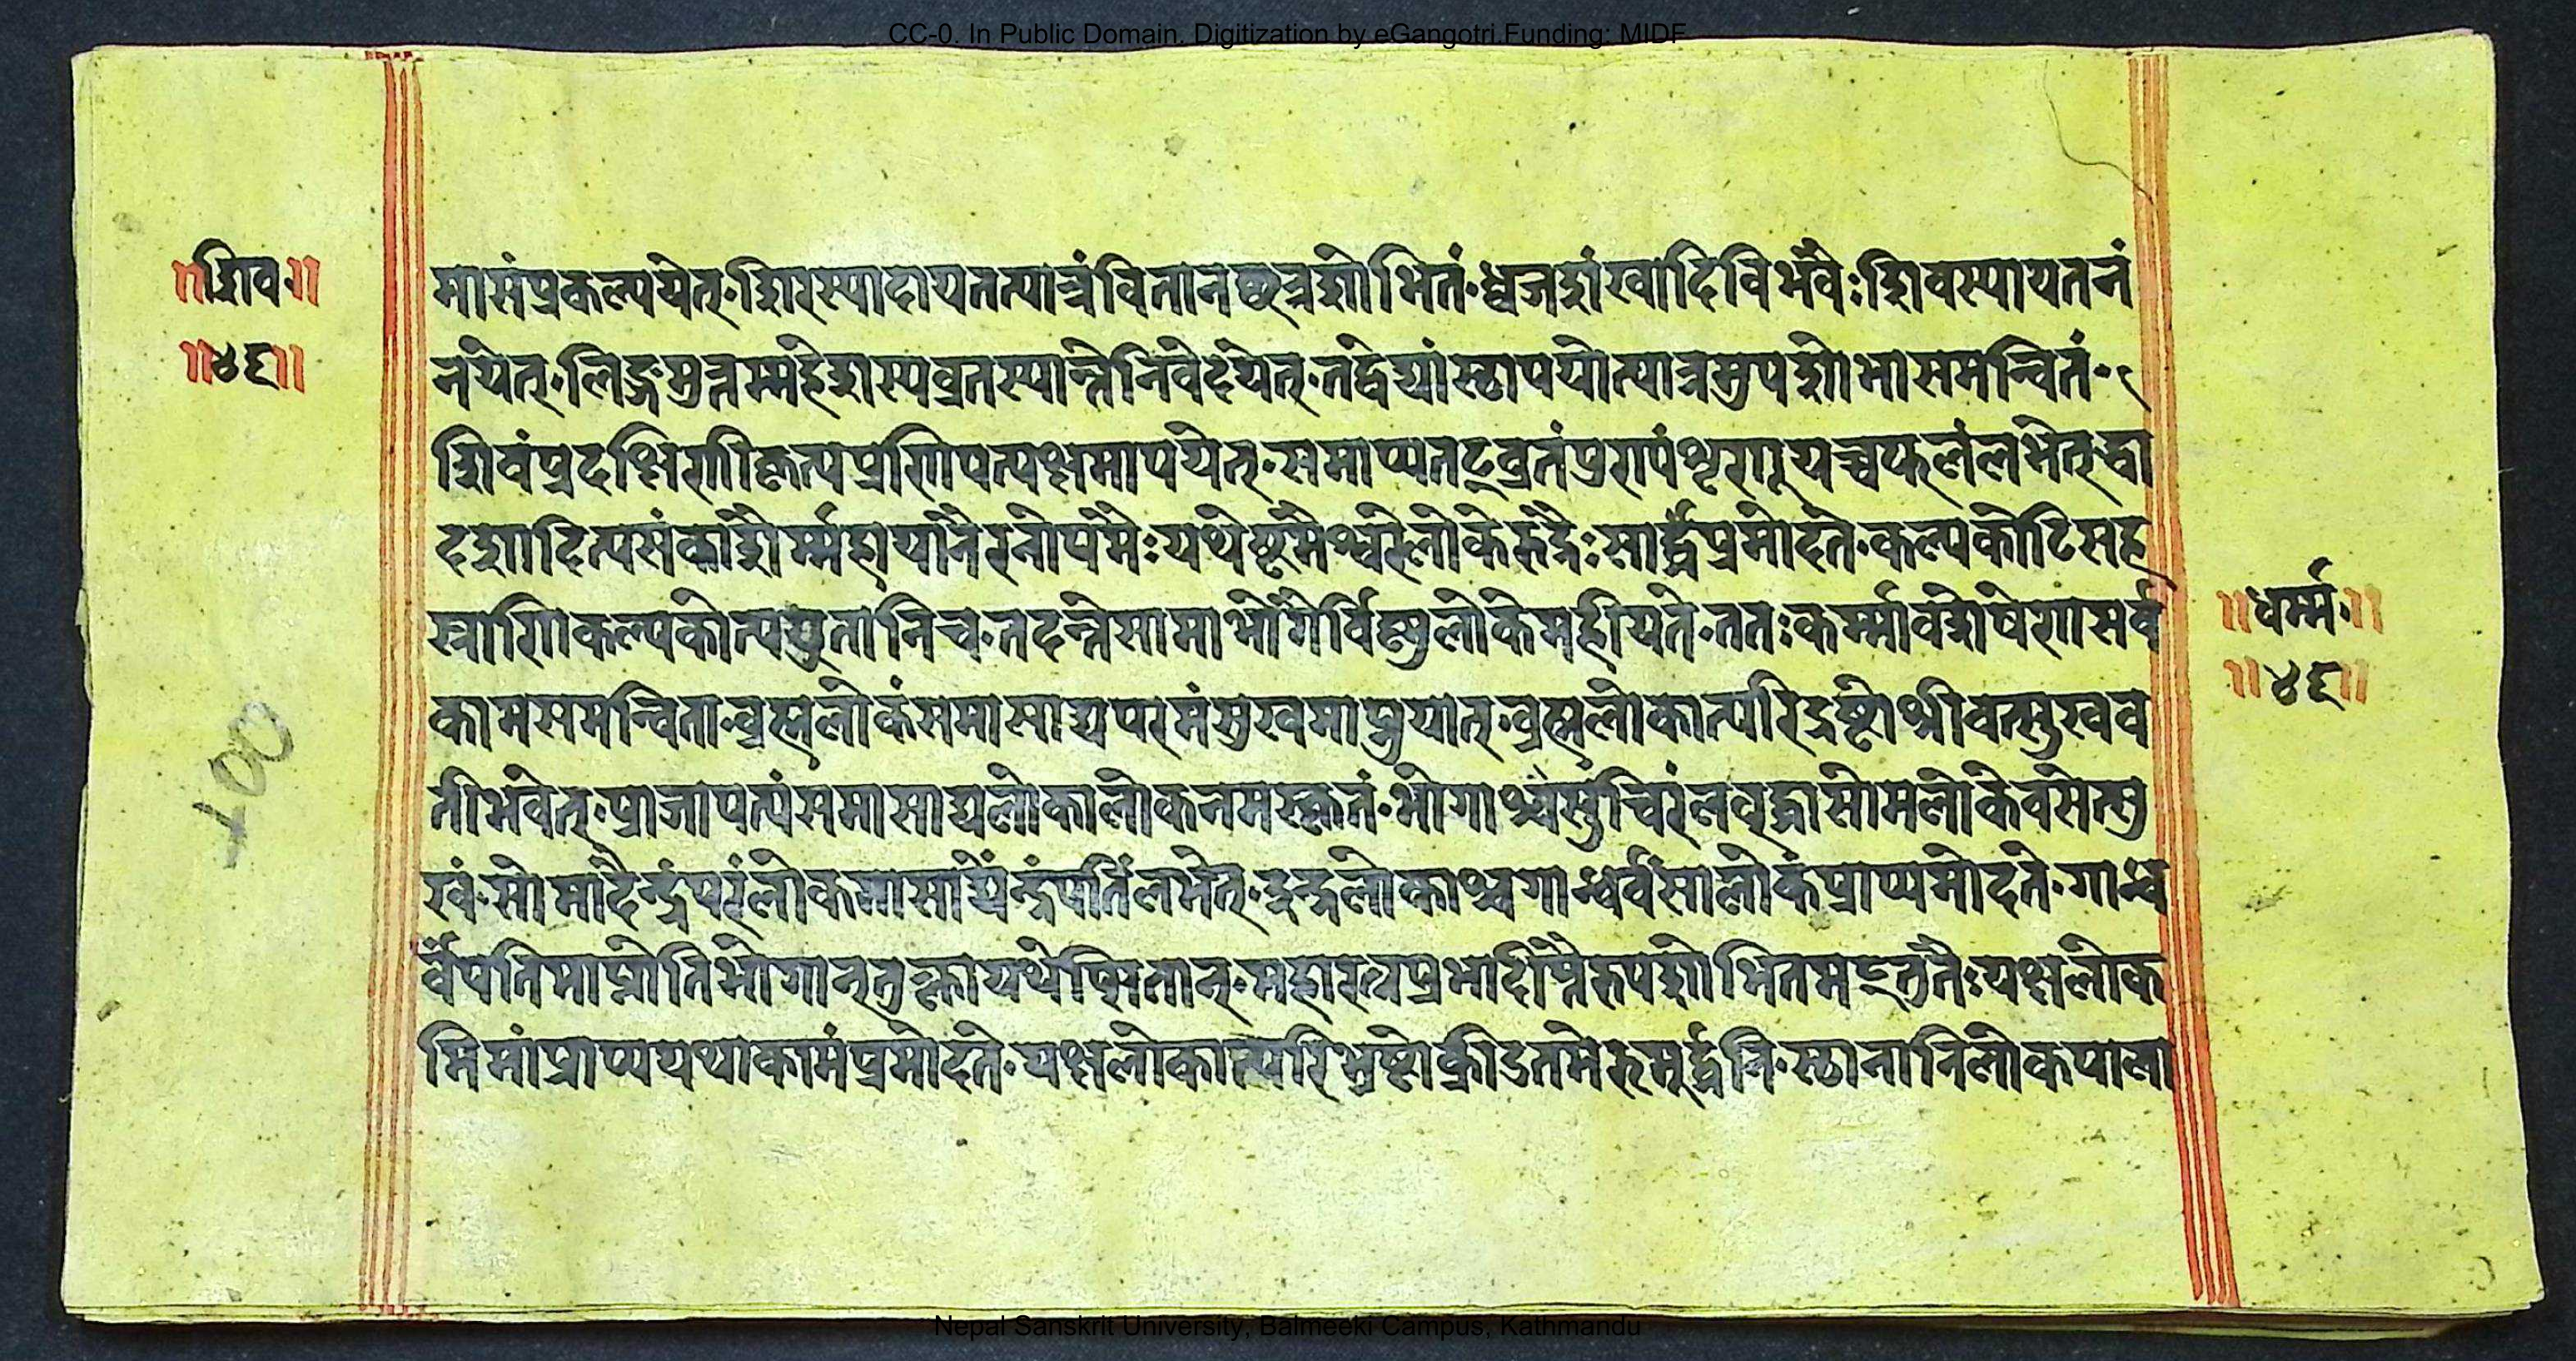 CC-0. In Public Domain. Digitization by eGangotri.Funding: MIDF
॥शिव॥
॥४६॥
मासंप्रकल्पयेत्·शिरस्यादायतत्पात्रंवितानछत्रशोभितं·ध्वजशंखादिविभवैःशिवस्यायतनं
नयेत्·लिङ्गमुत्रम्महेशस्यव्रतस्यान्तेनिवेदयेत्·तद्वेद्यांस्थापयोत्पात्रमुपशोभासमन्वितं·
शिवंप्रदक्षिणीकृत्यप्रणिपत्यक्षमापयेत्·समाप्यतद्व्रतंपुण्यंशृणुयच्चफलंलभेत्·द्वा
दशादित्यसंकाशैर्म्महायानैरनोपमैःयथेष्टमैश्वरेलोकेरुद्रैःसार्द्धंप्रमोदते·कल्पकोटिसह
स्त्राणिकल्पकोत्ययुतानिच·तदन्तेसामाभोगैर्विष्णुलोकेमहीयते·ततःकर्म्मावशेषेणसर्व
कामसमन्विता·व्रह्मलोकंसमासाद्यपरमंसुखमाप्नुयात्·व्रह्मलोकात्परिद्रष्टोश्रीवत्सुखव
तीभवेत्·प्राजापत्यंसमासाद्यलोकालोकनमस्कृतं·भोगाश्चसुचिरंलवृद्धासोमलोकेवसेत्सु
खं·सोमादैन्द्रंपरंलोकमासाद्येन्द्रंपतिंलभेत्·इन्द्रलोकाश्चगान्धर्वंसालोकंप्राप्यमोदते·गान्ध
र्वेपतिमाप्नोतिभोगान्तुक्त्वायथेप्सितान्·महारत्नप्रभादीप्तैरुपशोभितमद्भुतैःयक्षलोक
मिमांप्राप्ययथाकामंप्रमोदते·यक्षलोकात्परिभ्रष्टोक्रीडतेमेरुमूर्द्धनि·स्थानानिलोकपाला
॥धर्म्म॥
॥४६॥
100
Nepal Sanskrit University, Balmeeki Campus, Kathmandu